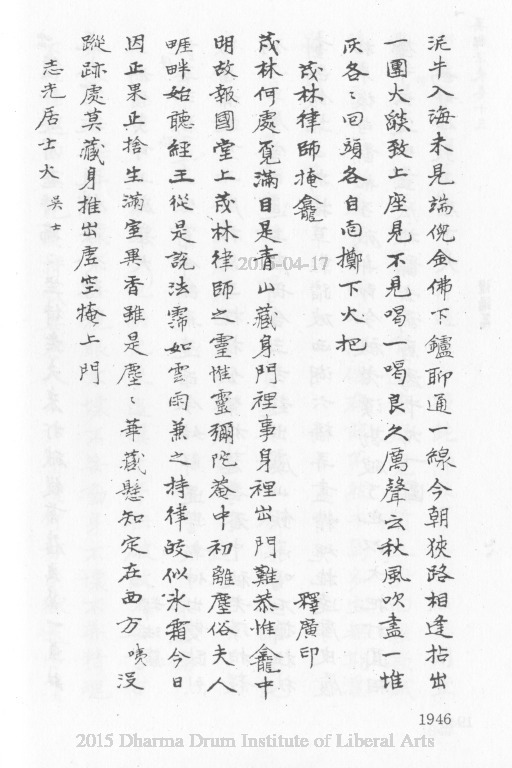 泥牛入海未見端倪金佛下鑪聊通一線今朝狹路相逢拈出
一團火燄致上座見不見喝一喝良久厲聲云秋風吹盡一堆
灰各各回頭各自向擲下火把
茂林律師掩龕
釋廣印
茂林何處覓滿目是青山藏身門裡事身裡出門難恭惟龕中
明故報國堂上茂林律師之靈惟靈彌陀菴中初離塵俗夫人
畔始聽經王從是說法霈如雲雨兼之持律皎似氷霜今日
因正果正捨生滿室異香雖是塵、華藏懸知定在西方 沒
蹤跡處莫藏身推出虛空掩上門
志光居士火 吳士
1946
2015-04-17
2015 Dharma Drum Institute of Liberal Arts